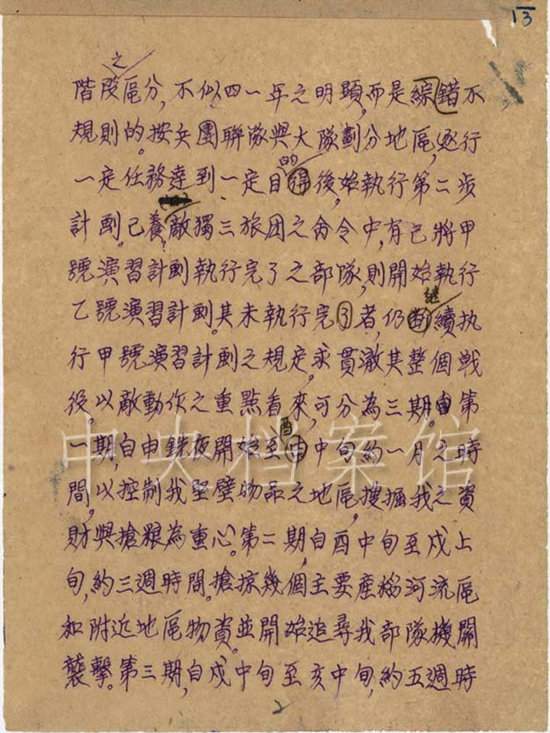 13
之
階段區分,不似四一年之明顯,而是綜錯不
規則的。按兵團聯隊與大隊劃分地區,逐行
的
一定任務達到一定目後,始執行第二步
計劃。已養敵獨三旅团之命令中,有已將甲
號演習計劃執行完了之部隊,則開始執行
继
乙號演習計劃。其未執行完了者,仍續执
行甲號演習計劃之規定。求貫澈其整個戰
後。以敵動作之重點看來,可分為三期。第
酉
一期,自申銑夜開始至中旬約一月之時
間,以控制我堅壁物品之地區,搜掘我之資
財與搶粮為重心。第二期,自酉中旬至戌上
旬,約三週時間。搶掠幾個主要產粮河流區
和附近地區物資並開始追尋我部隊機關
襲擊。第三期,自戌中旬至亥中旬,約五週時
2
中央档案馆